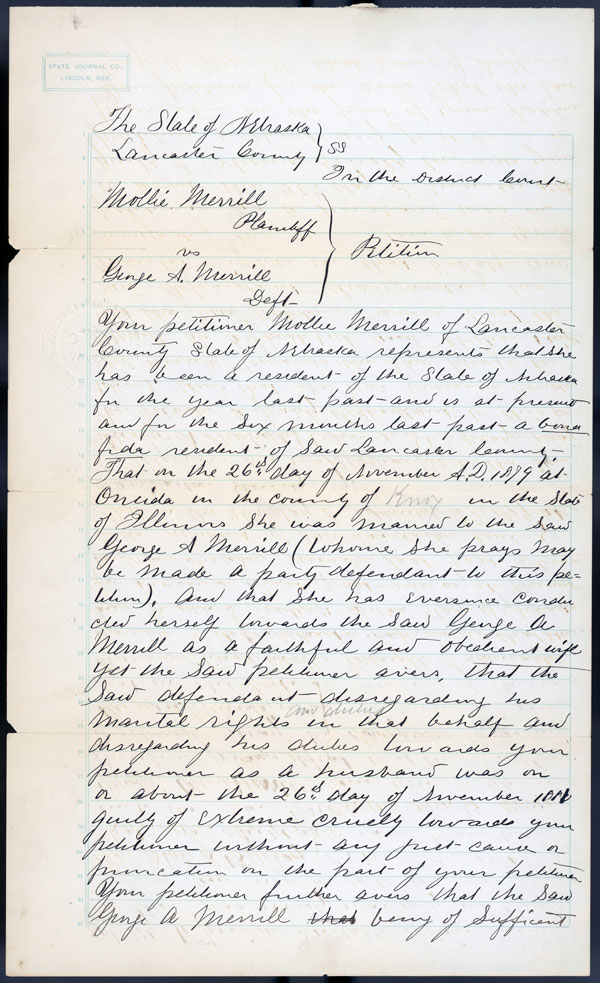 STATE JOURNAL CO.,
LINCOLN, NEB.
The State of Nebraska
Lancaster County } SS
In the District Court
Mollie Merrill
Plaintiff
vs
George A. Merrill
Deft
Petition
Your petitioner Mollie Merrill of Lancaster
County State of Nebraska represents that she
has been a resident of the State of Nebraska
for the year last past and is at present
and for the six months last past a bona
fida resident of Said Lancaster County.
That on the 26th day of November A.D. 1879 at
Oneida in the county of Knox in the State
of Illinois She was married to the Said
George A Merrill (Whome She prays May
be made a party defendant to this pe=
tition), And that She has ever since condu
cted herself towards the Said George A
Merrill as a faithful and obedient wife
yet the Said petitioner avers, that the
Said defendant disregarding his
and duties
Marital rights in that behalf and
disregarding his duties towards your
petitioner as a husband was on
or about the 26th day of November 1881
guilty of Extreme cruelty towards your
petitioner without any just cause or
provocation on the part of your petitioner
Your petitioner further avers that the Said
George A Merrill that being of Sufficient